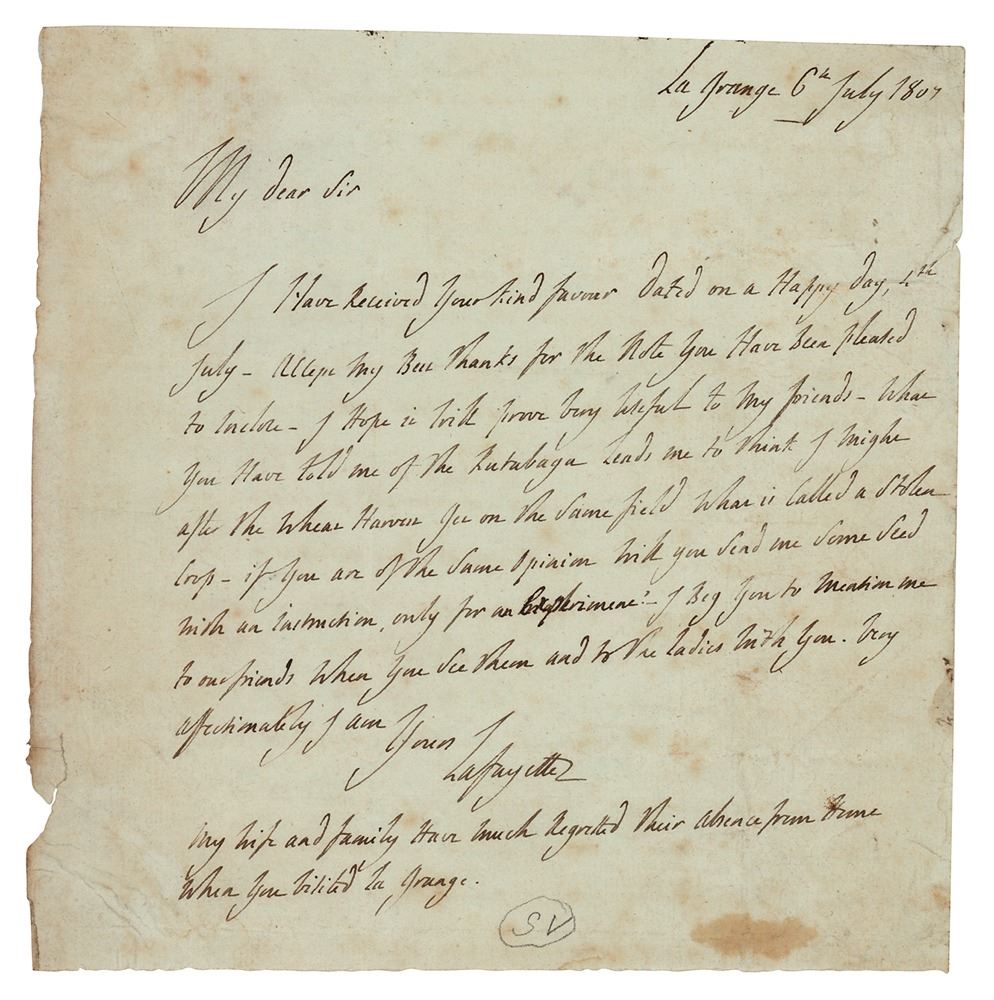 La Grange 6th July 1807
My dear Sir
I Have Received Your Kind favour Dated on a Happy Day, 4th
July – Accept My Best thanks for the Note You Have Been pleased
to inclose – I Hope it Will prove very Useful to My friends – What
You Have told me of the Rutabaga Leads me to think I Might
after the Wheat Harvest Get on the Same field What is Called a Stolen
Crop – if You are of the Same Opinion Will you Send me Some Seed
With an instruction, only for an Experiment? – I Beg You to Mention me
to our friends When You See them and to the Ladies With You. Very
affectionately I am
Yours
Lafayette
My Wife and family Have Much Regretted their absence from Home
When You visited La Grange.
SV